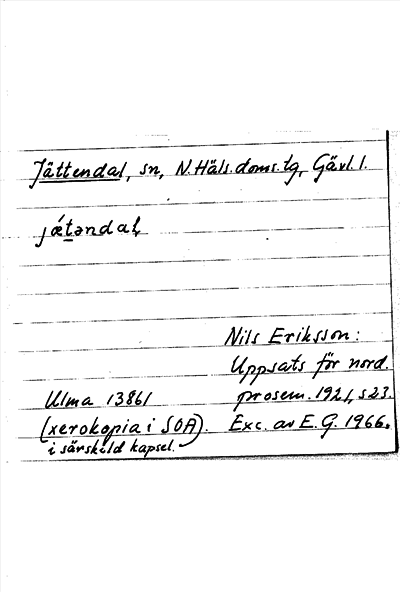 Jättendal, sn, N. Häls. doms. tg, Gävl. l.
jǽtəndal,
Nils Eriksson:
Uppsats för nord.
prosem. 1921, s 23.
Exc. av E. G. 1966.
Ulma 13861
(xerokopia i SOA).
i särskild kapsel.